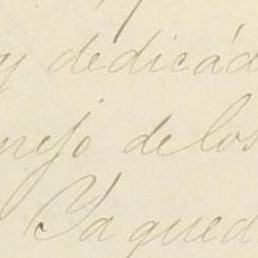 y dedicád
nejo de los
Ya qued